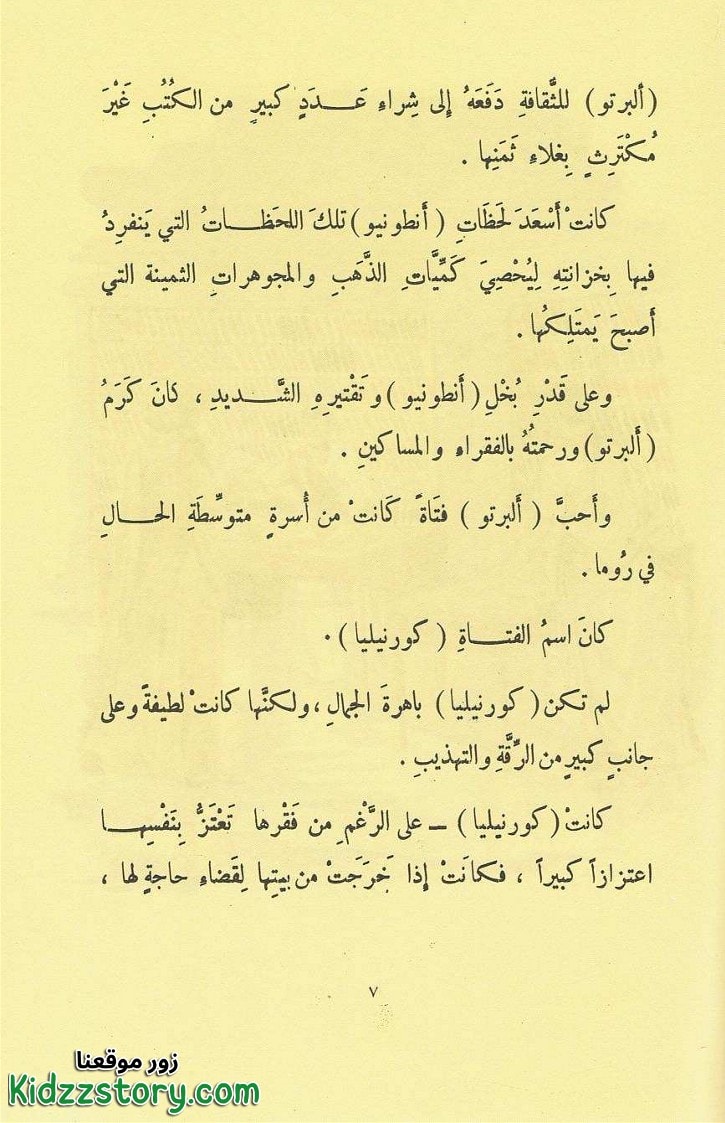 (ألبرتو) للثَّقافةِ دَفَعَهُ إلى شِراءِ عَدَدٍ كبيرٍ من الكُتُبِ غَيْرَ
مُكْتَرِثٍ بِغلاءِ ثَمَنِها .
كانتْ أَسْعَدَ لَحَظَاتِ (أَنطونيو) تلكَ اللحَظاتُ التي يَنفرِدُ
فيها بِخزانتِهِ لِيُحْصِيَ كَمِّيَّاتِ الذَّهَبِ والمجوهراتِ الثمينة التي
أَصبحَ يَمتَلِكُها .
وعلى قَدْرِ بُخْلِ (أَنطونيو) وتَقْتيرِهِ الشَّديدِ ، كانَ كَرَمُ
(أَلبرتو) ورحمتُهُ بالفقراءِ والمساكينِ .
وأَحبَّ (أَلبرتو) فتَاةً كَانتْ من أُسرةٍ متوسِّطَةِ الحالِ
في رُوما .
كانَ اسمُ الفتاةِ (كورنيليا) .
لم تكن (كورنيليا) باهرةَ الجمالِ ، ولكنَّها كانتْ لطيفةً وعلى
جانبٍ كبيرٍ من الرِّقَّةِ والتهذيبِ .
كانتْ (كورنيليا) – على الرَّغْمِ من فَقْرها تَعْتَزُّ بِنَفْسِها
اعتزازاً كبيراً ، فكانَتْ إذا خَرَجَتْ من بيتِها لِقَضاءِ حاجةٍ لها ،
٧
زور موقعنا
Kidzzstory.com